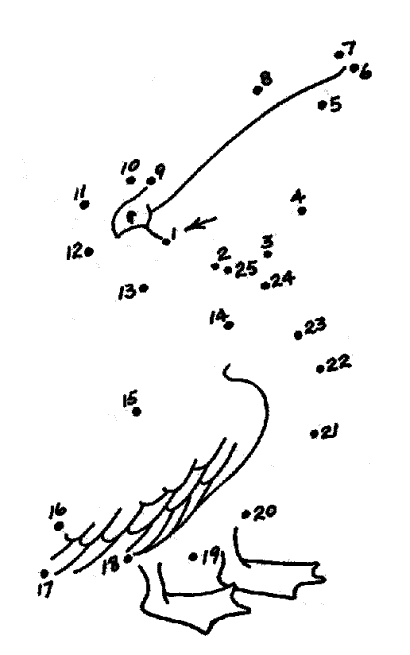 7
6
8
5
10 9
11
4
1
12
2 3
25
24
13
14
23
22
15
21
16
20
19
18
17